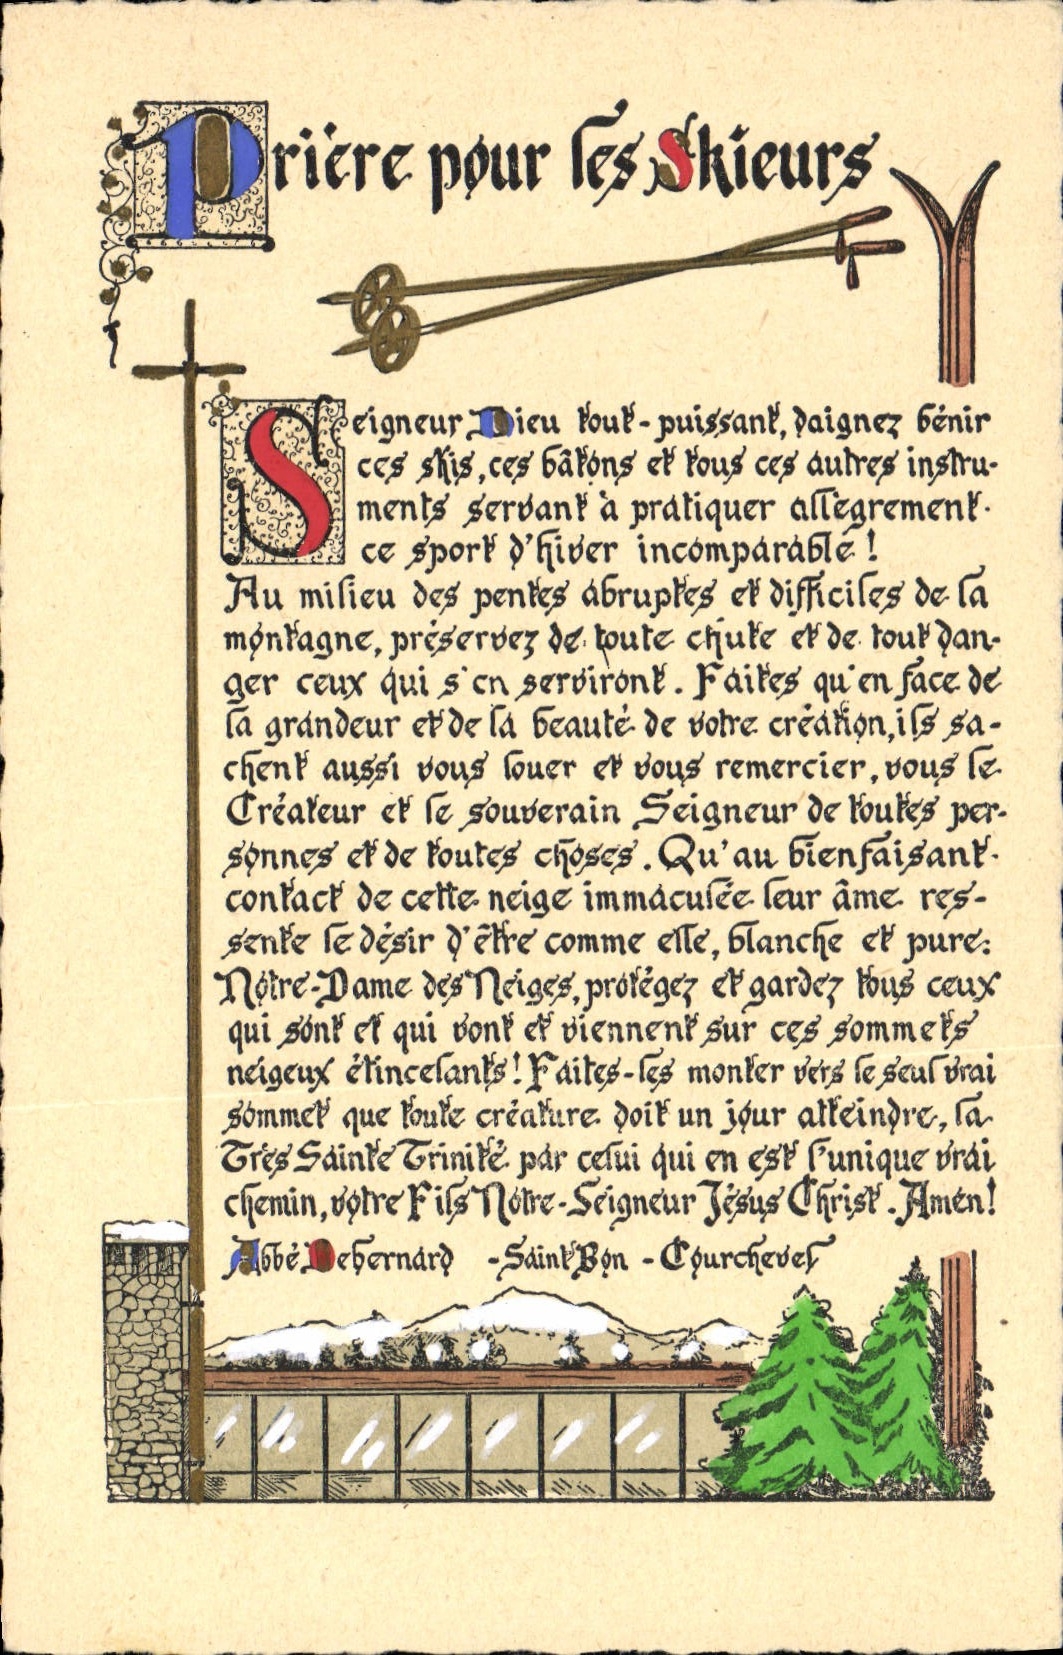 Prière pour les Skieurs
Seigneur Dieu tout-puissant, daignez bénir
ces skis, ces bâtons et tous ces autres instru-
ments servant à pratiquer allègrement
ce sport d'hiver incomparable !
Au milieu des pentes abruptes et difficiles de la
montagne, préservez de toute chute et de tout dan-
ger ceux qui s'en serviront. Faites qu'en face de
la grandeur et de la beauté de votre création, ils sa-
chent aussi vous louer et vous remercier, vous le
Créateur et le souverain Seigneur de toutes per-
sonnes et de toutes choses. Qu'au bienfaisant
contact de cette neige immaculée leur âme res-
sente le désir d'être comme elle, blanche et pure.
Notre-Dame des Neiges, protégez et gardez tous ceux
qui sont et qui vont et viennent sur ces sommets
neigeux étincelants ! Faites-les monter vers le seul vrai
sommet que toute créature doit un jour atteindre, la
Très Sainte Trinité par celui qui en est l'unique vrai
chemin, votre Fils Notre-Seigneur Jésus Christ. Amen !
Abbé Debernard - Saint Bon - Courchevel